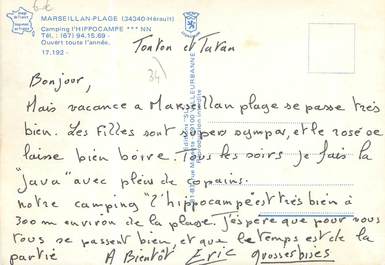 6€
MARSEILLAN-PLAGE (34340-Hérault)
Camping l'HIPPOCAMPE *** NN
Tél. : (67) 94.15.69 -
Ouvert toute l'année.
17.192 -
34)
Tonton et Tatan
Bonjour,
Mais vacance a Marseillan plage se passe très
bien. Les filles sont super sympas, et le rosé se
laisse bien boire. Tous les soirs je fais la
"java" avec plein de copains.
notre camping "l'hippocampe" est très bien à
300 m environ de la plage. J'espère que pour vous
tous se passent bien, et que le temps est de la
partie
A Bientôt Eric grosses bises